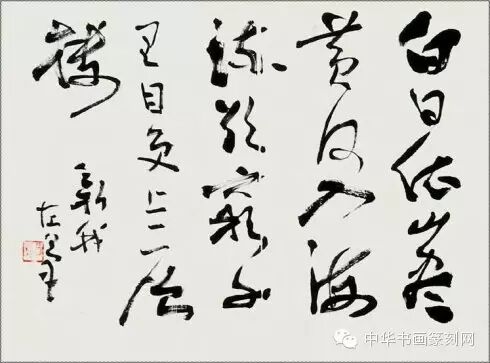 白日依山尽
黄河入海
流欲窮千
里目更上一层
楼
新我
左笔
中华书画篆刻网